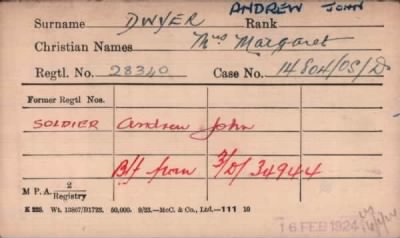 ANDREW JOHN
Surname DWYER Rank
Christian Names Mrs Margaret
Regtl. No. 28340 Case No. 14804/OS/D
Former Regtl Nos.
SOLDIER Andrew John
B/f from 3/D/34944
M P.A. 2
Registry
K 225. Wt. 13867/B1723. 50,000. 9/23.—McC. & Co., Ltd.—111 10
16 FEB 1924